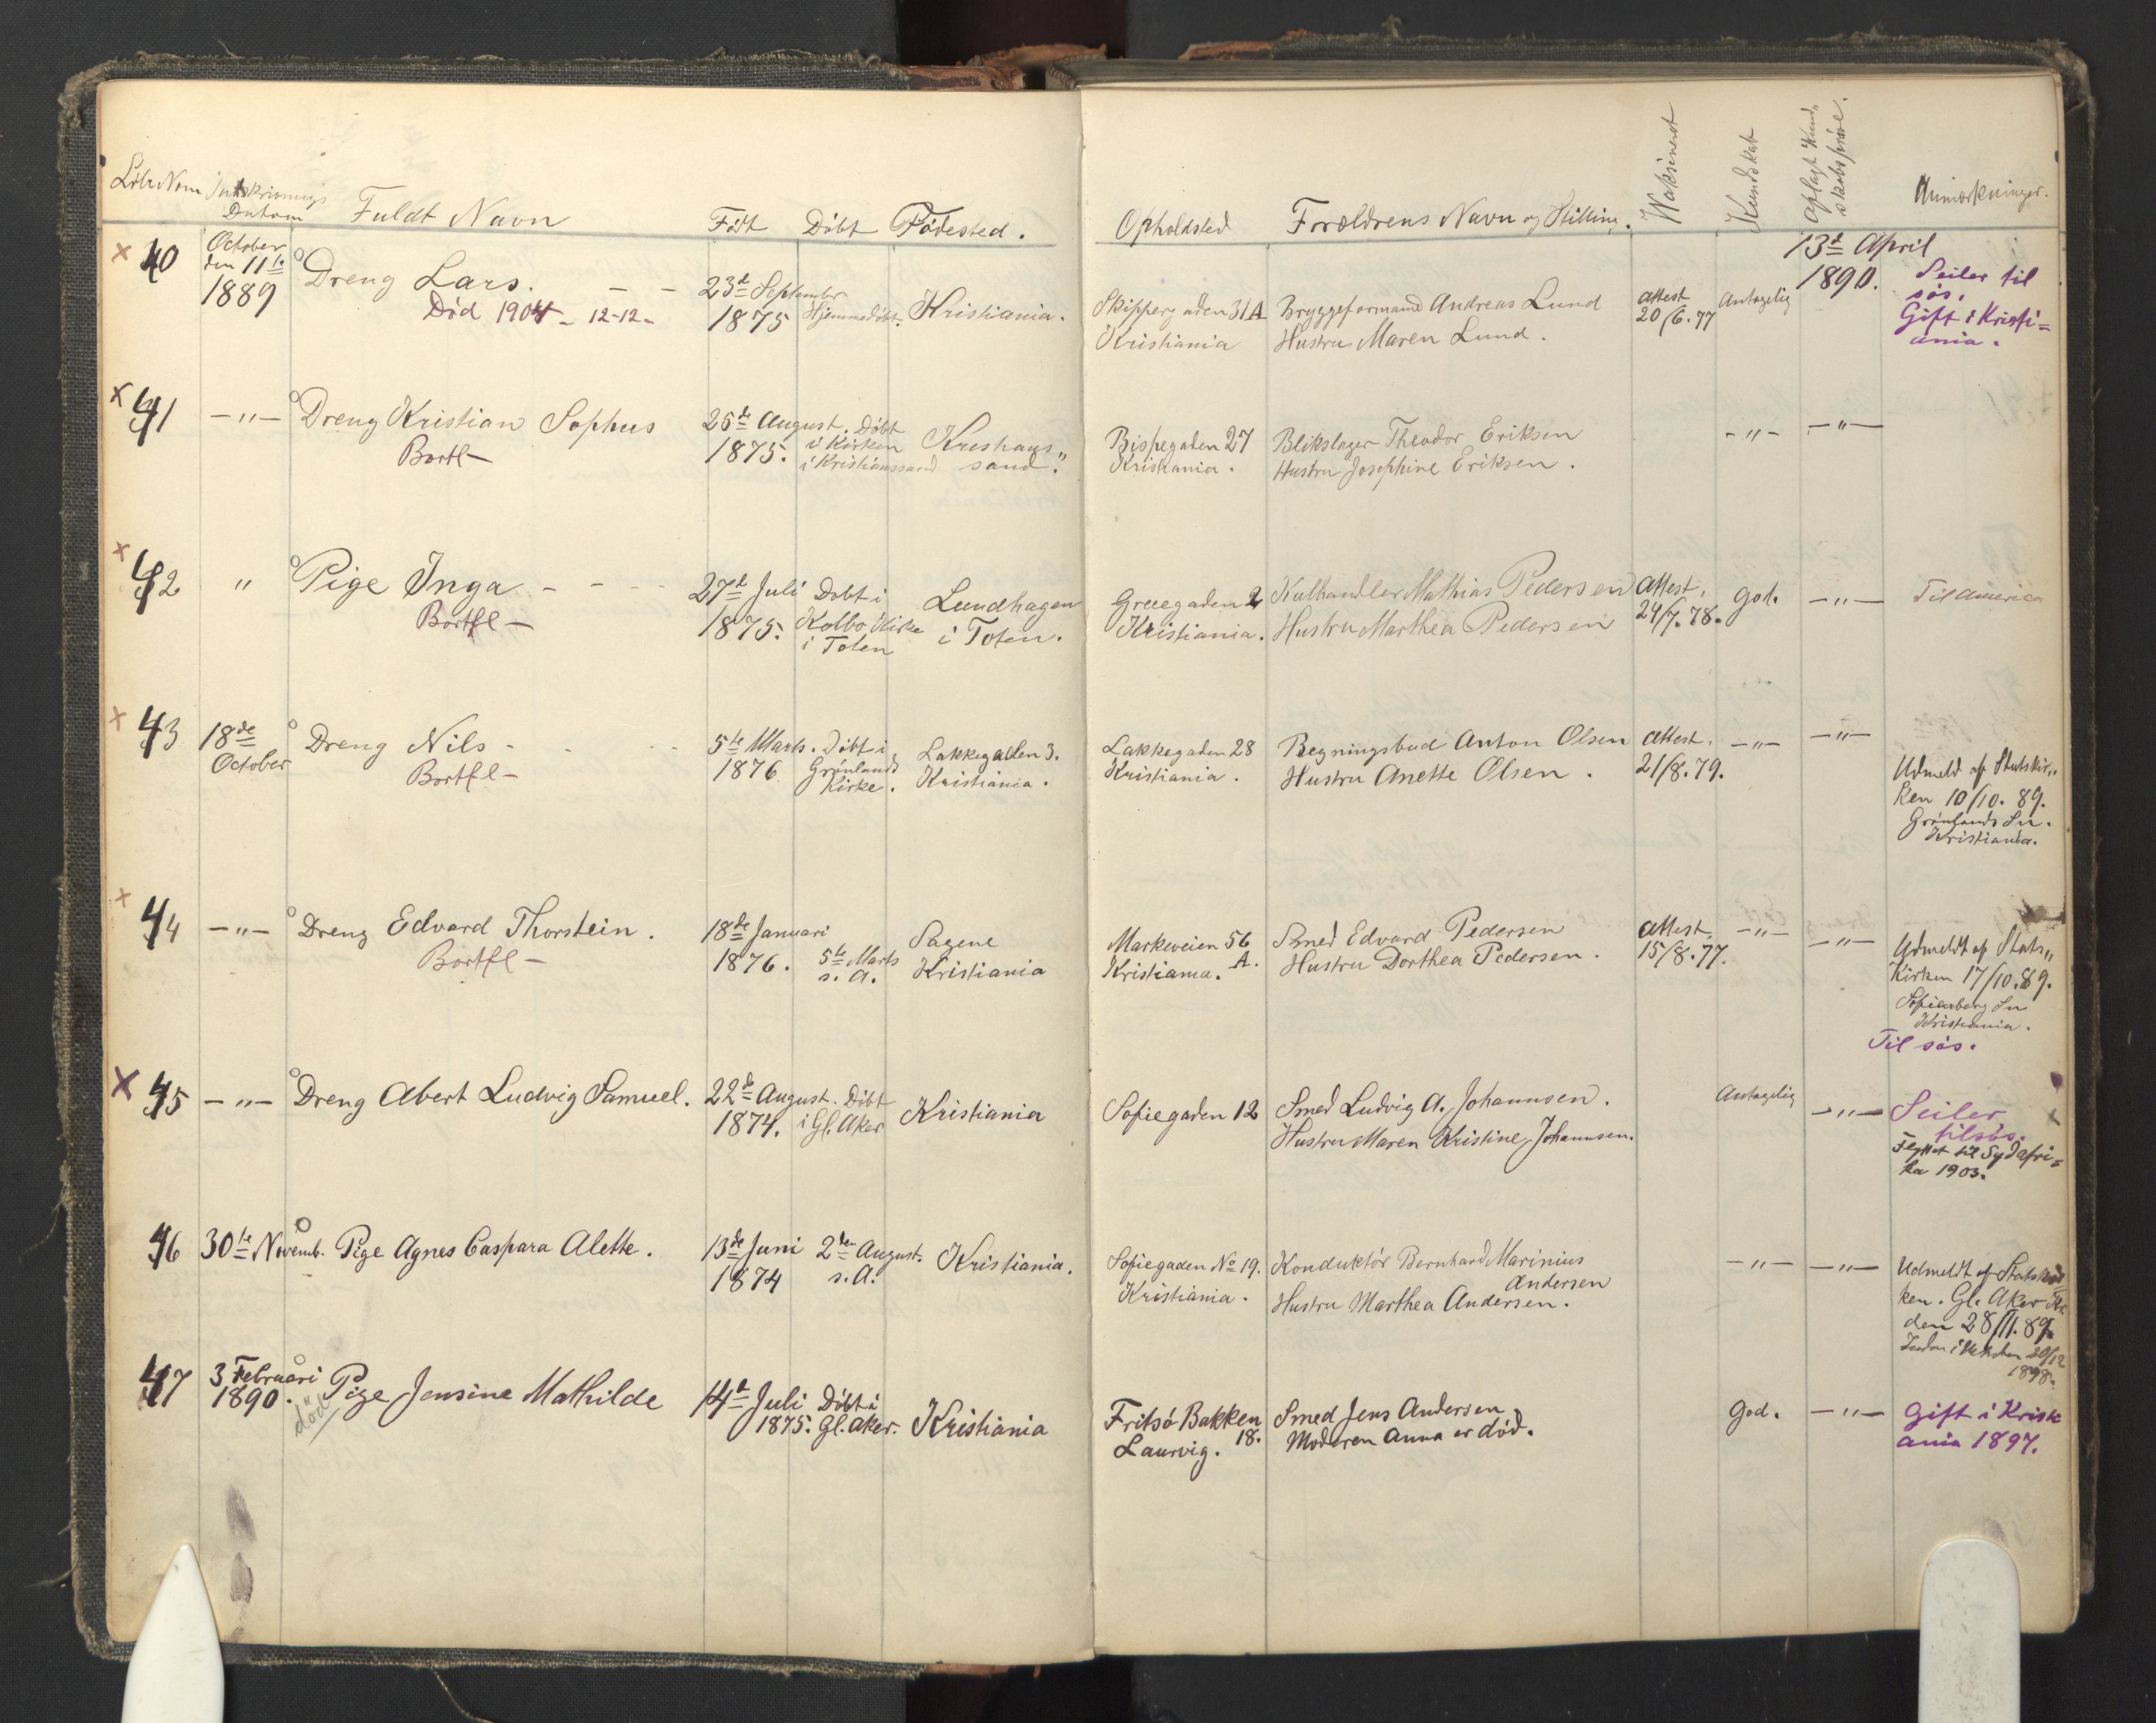 Löbe Num Indskrivnings Datum Fuldt Navn Födt Döbt Födested. Opholdsted Forældrens Navn og Stilling. Waksineret Kundskab Aflagt Kund„ skabspröve. Anmærkninger.
40 October den 11te 1889 Dreng Lars. 23de September 1875 Hjemmedöbt. Kristiania. Skippergaden 31A Kristiania Bryggeformand Andreas Lund Hustru Maren Lund. attest 20/6.77 Antagelig 13de April 1890. Seiler til sös. Gift i Kristi= ania.
Död 1904 - 12-12-
41 —„— Dreng Kristian Sophus 26de August 1875. Döbt i Kirken i Kristianssand Kristians„ sand. Bispegaden 27 Kristiania. Blikslager Theodor Eriksen Hustru Josephine Eriksen. —„— —„—
Bortfl—
42 „ Pige Inga 27de Juli 1875. Döbt i Kolbo Kirke i Toten Lundhagen i Toten. Grueegaden 2 Kristiania. Kulhandler Mathias Pedersen Hustru Marthea Pedersen attest. 24/7.78. god. —„— Til America
Bortfl—
43 18de October Dreng Nils 5te Marts. 1876 Döbt i Grönlands Kirke. Lakkegaden 3. Kristiania. Lakkegaden 28 Kristiania. Regningsbud Anton Olsen Hustru Anette Olsen. attest. 21/8.79. —„— —„— Udmeld af Statskir„ ken 10/10.89. Grönlands Sn. Kristiania.
Bortfl—
44 —„— Dreng Edvard Thorstein. 18de Januari 1876. 5te Marts s.A. Sagene Kristiania Markveien 56 A. Kristiania. Smed Edvard Pedersen Hustru Dorthea Pedersen. attest. 15/8.77. —„— —„— Udmeldt af Stats„ Kirken 17/10.89. Sofienberg Sn Kristiania. Til sös.
Bortfl—
45 —„— Dreng Abert Ludvig Samuel. 22de August. 1874. Döbt i Gl. Aker Kristiania Sofiegaden 12 Smed Ludvig A. Johannsen. Hustru Maren Kristine Johannsen. Antagelig —„— Seiler tilsös. Flyttet til Sydafri= ka 1903.
46 30te Novemb. Pige Agnes Caspara Alette. 13de Juni 1874 2den August. s.A. Kristiania. Sofiegaden No 19. Kristiania. Konduktör Bernhard Marinius Andersen Hustru Marthea Andersen. —„— —„— Udmeldt af Statskir ken. Gl. Aker den 28/11.89. 1898.
47 3 Februari 1890. död Pige Jensine Mathilde 14de Juli 1875. Döbt i Gl. Aker. Kristiania Fritsö Bakken 18. Laurvig. Smed Jens Andersen Moderen Anna er död. God. —„— Gift i Krist ania 1897.